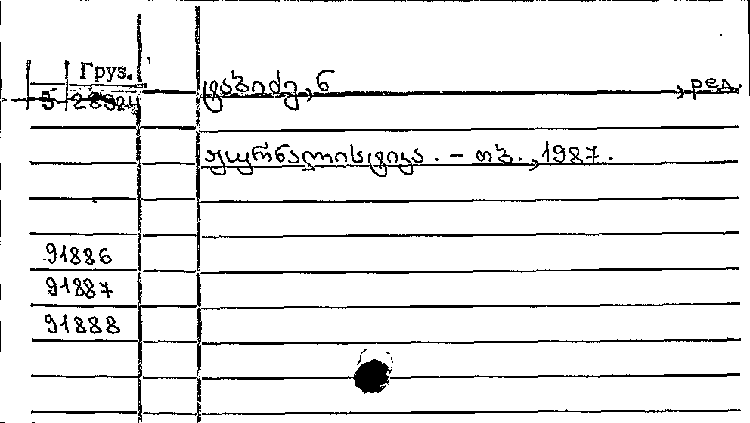 Груз.
ტაბიძე, ნ , ред.
ჟურნალისტიკა. – თბ., 1987.
91886
91887
91888